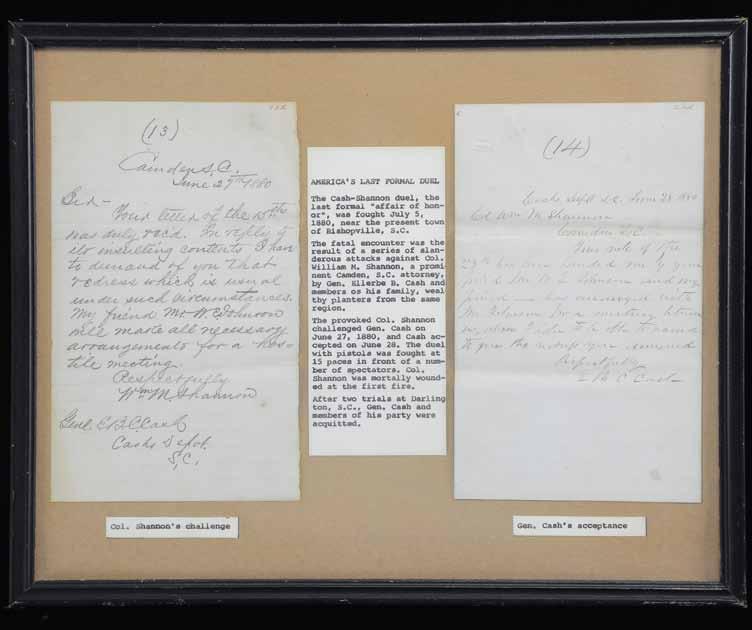 (13)
Camden, S.C.
June 27th 1880
Sir -
Your letter of the 15th
was duly rec'd. In reply to
its insulting contents I have
to demand of you that
redress which is usual
under such circumstances.
My friend Mr W. E. Johnson
will make all necessary
arrangements for a hos-
tile meeting.
Respectfully
Wm M. Shannon
Genl E.B.C. Cash
Cashs Depot.
S.C.
AMERICA'S LAST FORMAL DUEL
The Cash-Shannon duel, the
last formal "affair of hon-
or", was fought July 5,
1880, near the present town
of Bishopville, S.C.
The fatal encounter was the
result of a series of slan-
derous attacks against Col.
William M. Shannon, a promi-
nent Camden, S.C. attorney,
by Gen. Ellerbe B. Cash and
members os his family, weal
thy planters from the same
region.
The provoked Col. Shannon
challenged Gen. Cash on
June 27, 1880, and Cash ac-
cepted on June 28. The duel
with pistols was fought at
15 paces in front of a num-
ber of spectators. Col.
Shannon was mortally wound-
ed at the first fire.
After two trials at Darling
ton, S.C., Gen. Cash and
members of his party were
acquitted.
(14)
Cashs Depot S.C. June 28 1880
Col Wm M Shannon
Camden S.C.
Your note of the
27th has been handed me by your
friend W. E. Johnson and my
friend has arranged with
Mr Johnson for a meeting between
us, when I
to give you the redress you demand
Respectfully
E B C Cash
Col. Shannon's challenge
Gen. Cash's acceptance